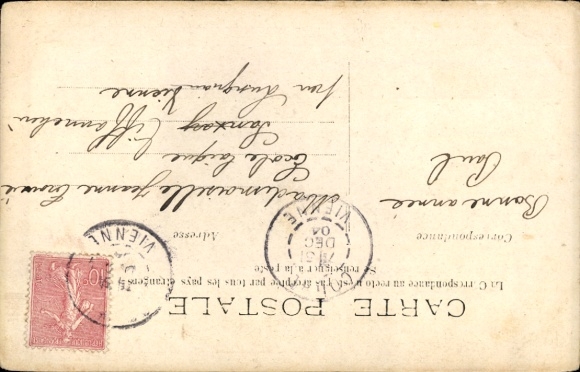 CARTE POSTALE
La Correspondance au recto n'est pas acceptée par tous les pays étrangers
se renseigner à la poste
Correspondance
Adresse
Bonne année
Paul
Mademoiselle Jeanne
École laïque
Sanxay
par Lusignan Vienne
VIENNE
7E 31
DEC
04
VIENNE
10